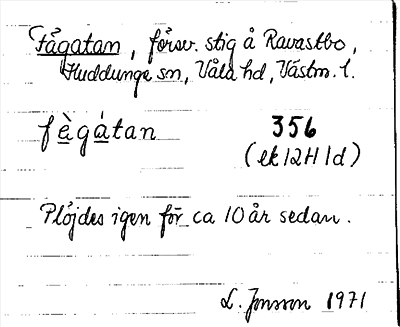 Fågatan, försv. stig å Ravastbo,
Huddunge sn, Våla hd, Västm. l.
fègátan 356
(ek 12H 1d)
Plöjdes igen för ca 10 år sedan.
L. Jonsson 1971